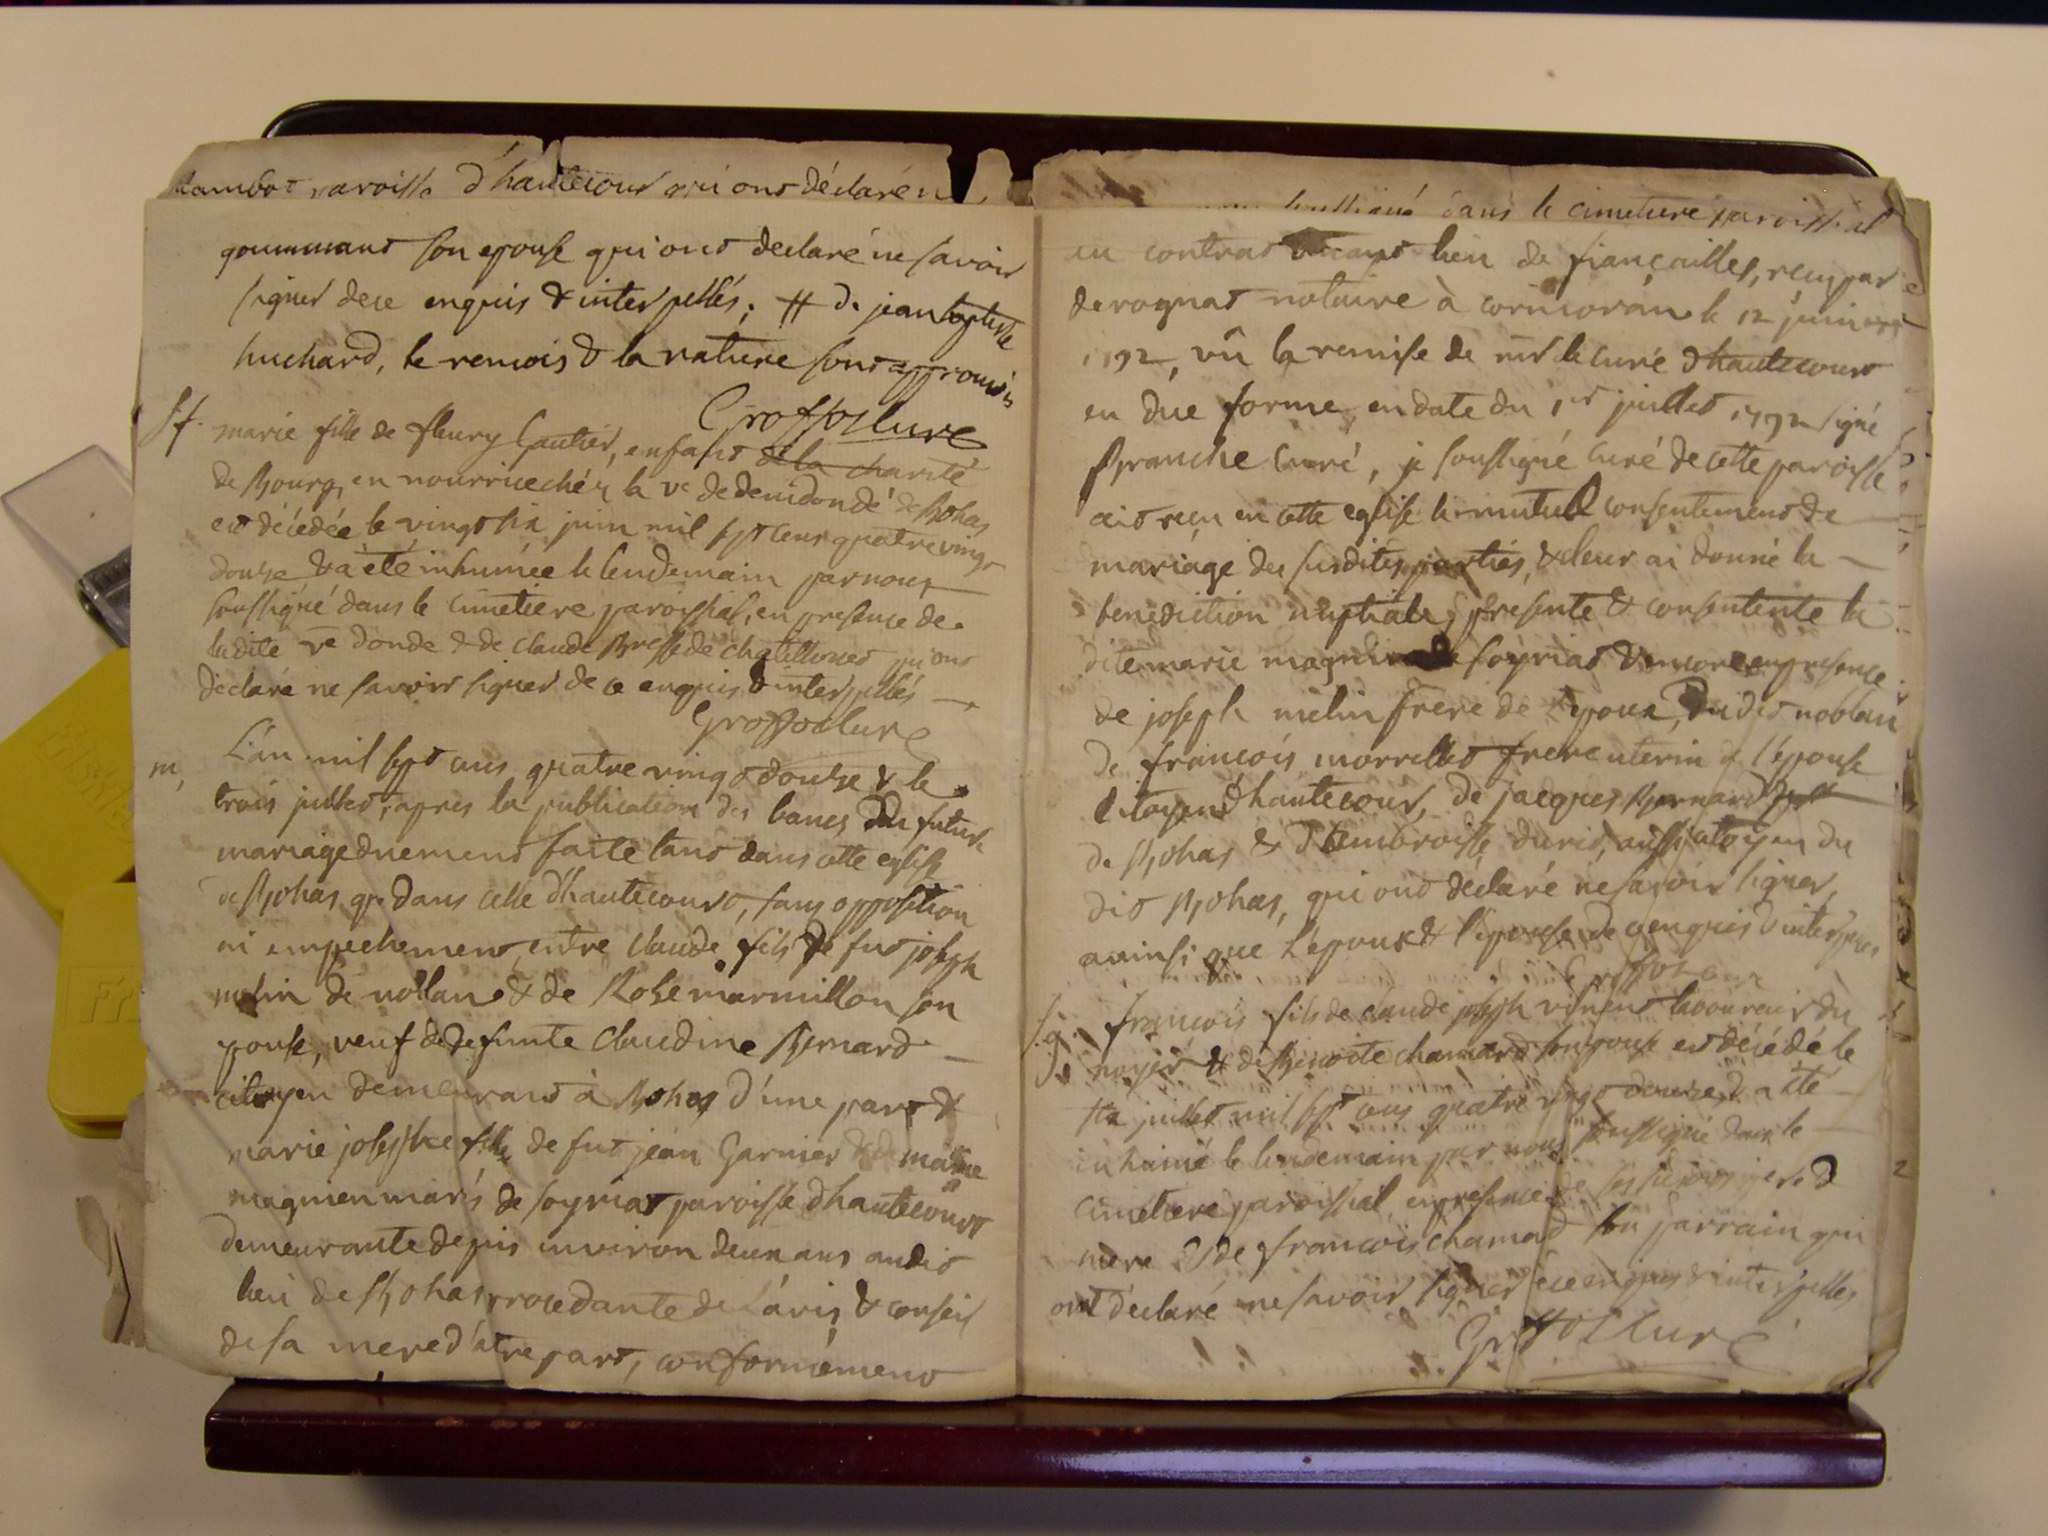 paroisse d'hautecour qui ont déclaré n
gourmand son epouse qui ont declaré ne savoir
signer de ce enquis & interpellés; # de jean baptiste
huchard, le renvois & la rature sont approuvés
Grossos curé
Sf. marie fille de fleury Gautier, enfant de la charité
de Bourg, en nourrice chéz la ve de denidondé de Bohas
est décédée le vingt six juin mil sept cent quatre vingt
douze & a été inhumée le lendemain par nous
soussigné dans le cimetiere paroissial, en presence de
la dite ve donde & de claude Bresse de chatillonet qui ont
déclaré ne savoir signer de ce enquis & interpellés
Grossos curé
m, L'an mil sept cens quatre vingt douze & le
trois juillet, apres la publication des bancs du futur
mariage duement faite tant dans cette eglise
de Bohas que dans celle d'hautecourt, sans opposition
ni empechement, entre claude fils de fut joseph
melin de noblan & de Rose marmillon son
epouse, veuf de defunte claudine Bernard
citoyen demeurant à Bohas d'une part &
marie josephte fille de fut jean Garnier & de marie
magnien mariés de soyriat paroisse d'hautecourt
demeurante depuis environ deux ans audit
lieu de Bohas procedante de l'avis & conseil
de sa mere d'atre part, conformément
soussigné dans le cimetiere paroissial
au contrat lieu de fiançailles, reçu par
derognat notaire à corricoran le 12 juin
1792, vû la remise de mr le curé d'hautecourt
en düe forme en date du 1er juillet 1792 signé
Branche curé, je soussigné curé de cette paroisse
ait reçu en cette eglise le mutuel consentement de
mariage des susdites parties, & leur ai donné la
benediction nuptiale, presente & consentente la
dite marie magnin de soyriat & encore en presence
de joseph melin frere de l'epoux, du dit noblan
de françois morrellet frere uterin de l'épouse
citoyen d'hautecour, de jacques Bernard
de Bohas & d'embroisse duris, aussi citoyen du
dit Bohas, qui ont declaré ne savoir signer,
aainsi que l'époux & l'épouse de ce enquis & interpellés
Grossos curé
françois fils de claude joseph vinent laboureur du
noyer & de Benoite chamard son epouse est décédé le
six juillet mil sept cens quatre vingt douze, & a été
inhumé le lendemain par nous soussigné dans le
cimetiere paroissial, en presence de ses pere &
mere & de françois chamard son parrain qui
ont déclaré ne savoir signer de ce enquis & interpellés
Grossos curé